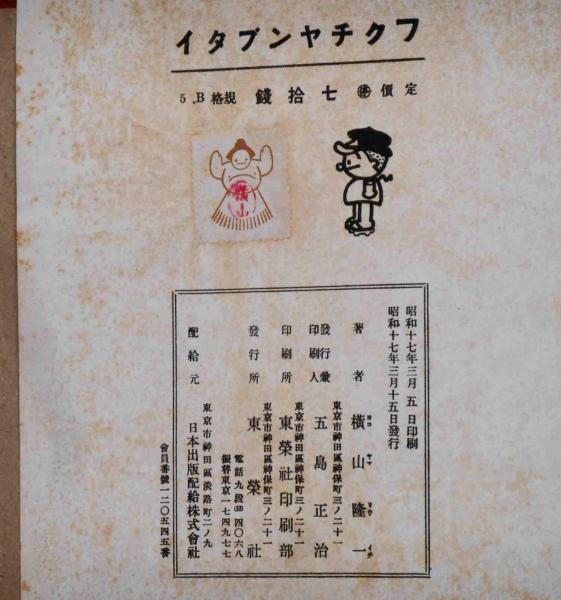 フクチヤンブタイ
定價 停 七拾錢 規格B.5
横山
昭和十七年三月五日印刷
昭和十七年三月十五日發行
著者 橫山隆一
ヨコ ヤマ リウ イチ
東京市神田區神保町三ノ二十一
發行兼印刷人 五島正治
東京市神田區神保町三ノ二十一
印刷所 東榮社印刷部
東京市神田區神保町三ノ二十一
發行所 東榮社
電話九段(33)四〇六八
振替東京一七四九七七
東京市神田區淡路町二ノ九
配給元 日本出版配給株式會社
會員番號一二〇五四五番